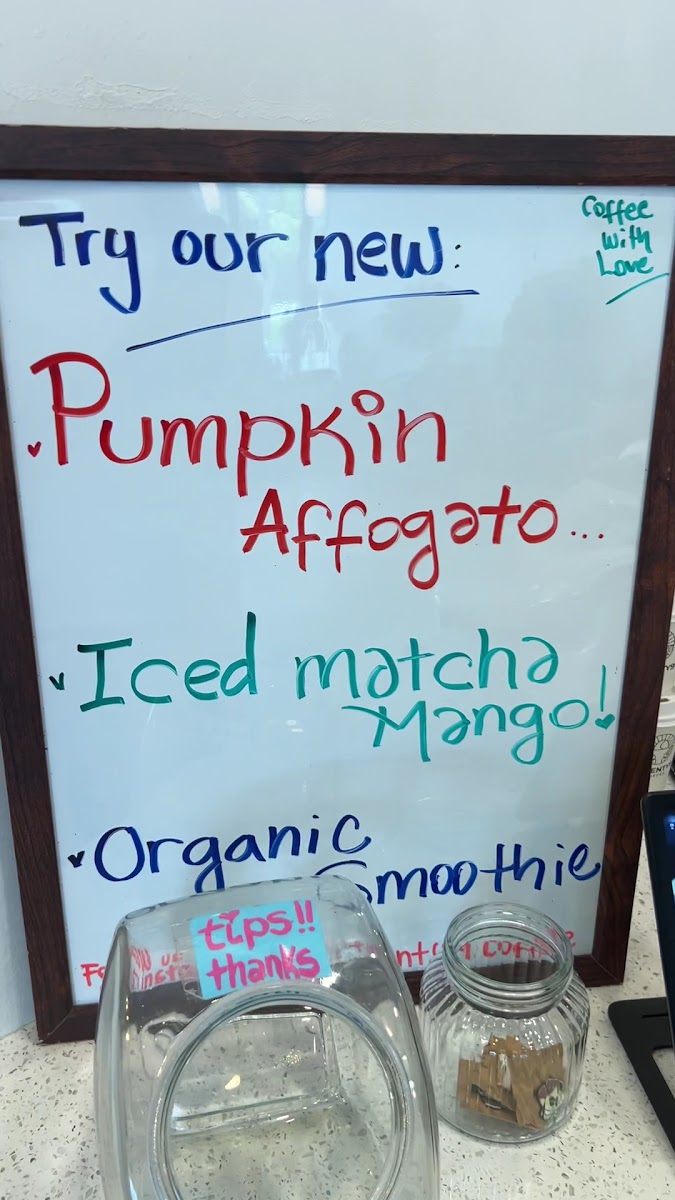 Try our new:
Coffee
with
Love
Pumpkin
Affogato...
Iced matcha
Mango!
Organic
Smoothie
tips!!
thanks